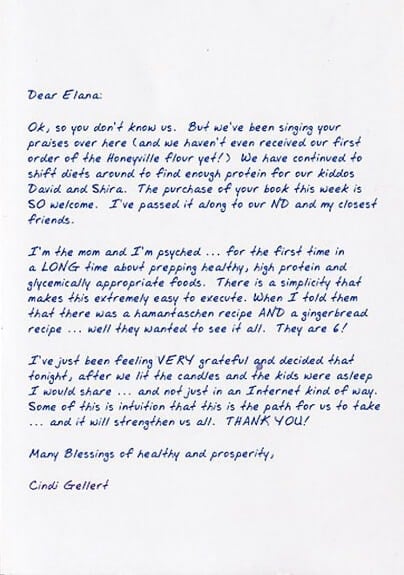 Dear Elana:
Ok, so you don't know us. But we've been singing your
praises over here (and we haven't even received our first
order of the Honeyville flour yet!) We have continued to
shift diets around to find enough protein for our kiddos
David and Shira. The purchase of your book this week is
SO welcome. I've passed it along to our ND and my closest
friends.
I'm the mom and I'm psyched ... for the first time in
a LONG time about prepping healthy, high protein and
glycemically appropriate foods. There is a simplicity that
makes this extremely easy to execute. When I told them
that there was a hamantaschen recipe AND a gingerbread
recipe ... well they wanted to see it all. They are 6!
I've just been feeling VERY grateful and decided that
tonight, after we lit the candles and the kids were asleep
I would share ... and not just in an Internet kind of way.
Some of this is intuition that this is the path for us to take
... and it will strengthen us all. THANK YOU!
Many Blessings of healthy and prosperity,
Cindi Gellert